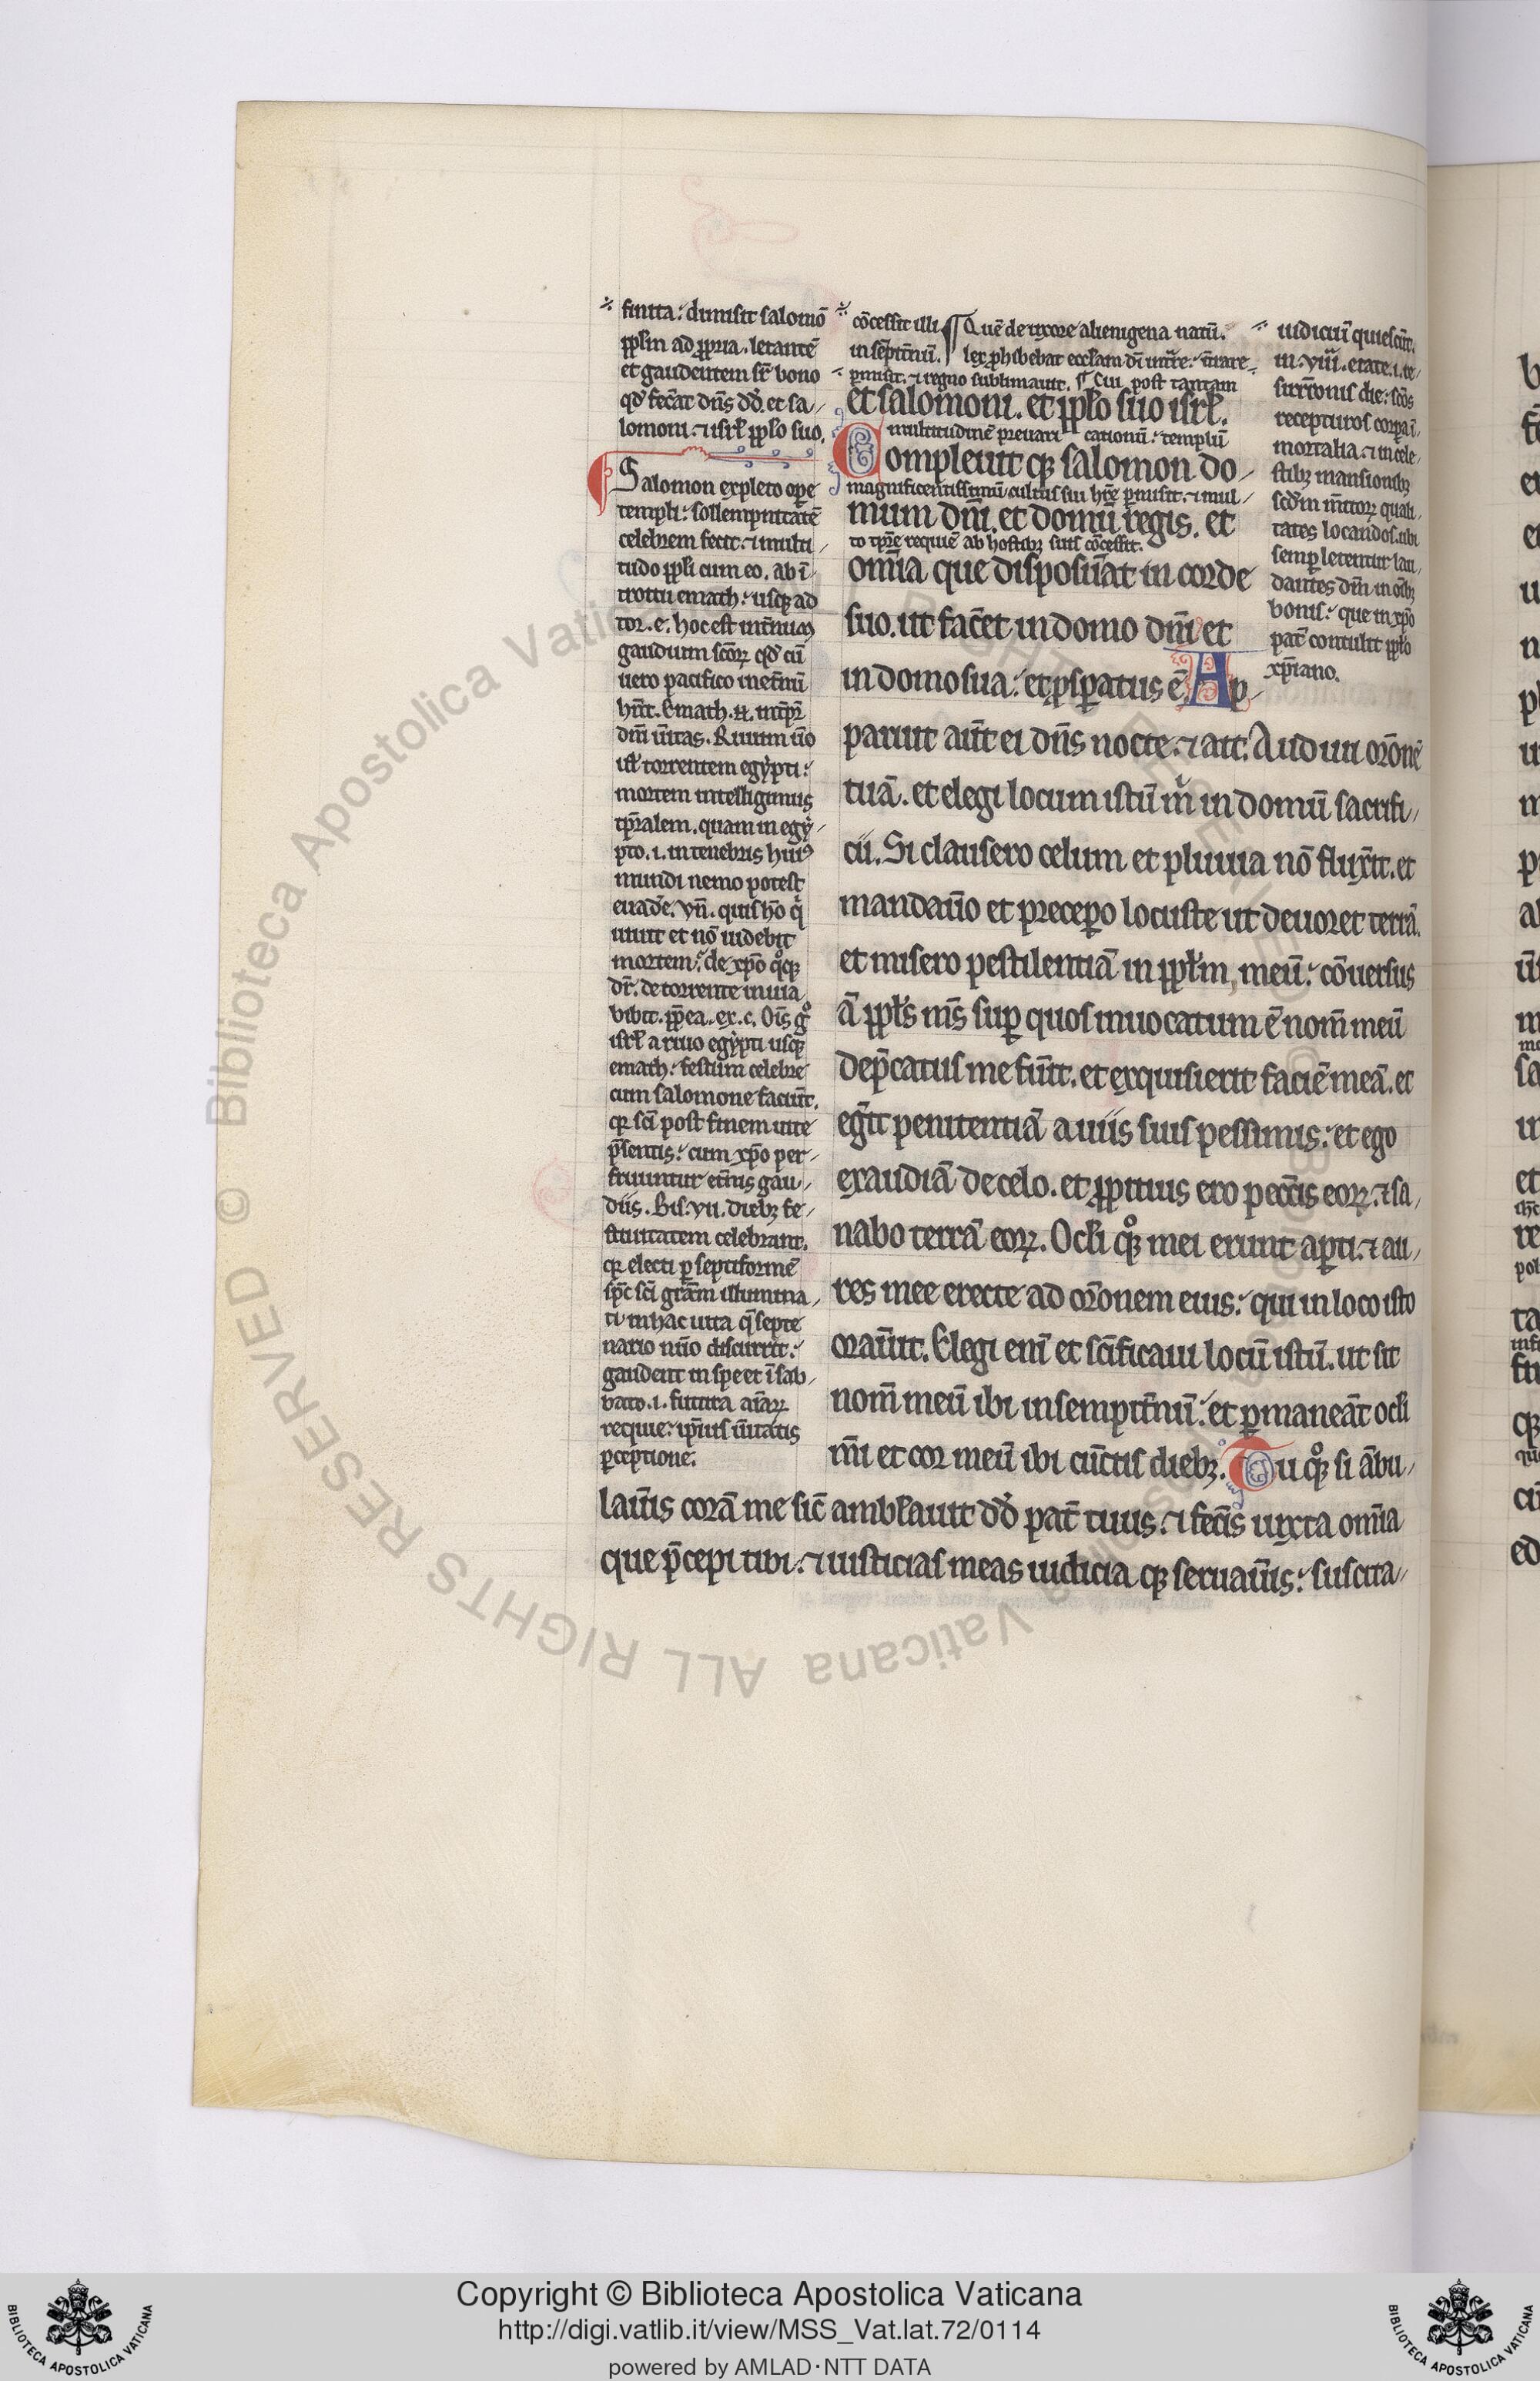 finita: dimisit salomō
pplm̄ ad ꝓpria. letantē
et gaudentem sr̄ bono
qd̓ fec̄at dn̄s dd̓. et sa
lomoni. ⁊ isrł pplo suo.
Salomon expleto oꝑe
templi: sollempnitatē
celebrem fecit. ⁊ multi
tudo ppli cum eo. ab ī
troitu emath: usqꝫ ad
tor. e. hoc est int̄nū
gaudium sc̄oꝝ qd̓ cū
uero pacifico inet̄nū
hn̄t. Emath. n̄. int̄pr̄
dn̄i ūitas. Riuum ūo
ul̄ torrentem egypti:
mortem intelligimus
tꝑalem. quam in egy
pto. i. in tenebris huiꝰ
mundi nemo potest
euade. vn̄. quis hō q̇
uiuit et nō uidebit
mortem: de xp̄o qͦqꝫ
dr̄. de torrente in uia
bibit. ꝓpea. ex. c. Ois̄ gͦ
isrł a riuo egypti usqꝫ
emath: festum celebre
cum salomone faciūt.
qꝛ sc̄i post finem uite
p̄sentis: cum xp̄o per
fruuntur et̄nis gau
diis. Bis. vii. diebꝫ fe
stiuitatem celebrant.
qꝛ electi ꝑ septiformē
sp̄c sc̄i grām illumina
ti in hac uita q̄ septe
nario nūo discurrit:
gaudent in spe et ī sab
bato. i. futura aīaꝝ
requie: ip̄ius ūitatis
ꝑceptione.
cōcessit illi
in sēpit̄nū.
¶ Quē de uxore alienigena natū.
lex ꝓhibebat eccłam dī int̄re:
ꝑmisit. ⁊ regno sublimauit. ¶ Cui post tantam
et salomoni. et pplo suo isrł.
multitudinē preuari cationū: templū
Compleuit qꝫ salomon do
magnificentissimū cultus sui hr̄e ꝑmisit. ⁊ mul
mum dn̄i. et domū regis. et
to tꝑe requiē ab hostibꝫ suis cōcessit.
om̄ia que disposūat in corde
suo. ut fac̄et in domo dn̄i et
in domo sua: et ꝓsꝑatus ē. Ap
paruit aūt ei dn̄s nocte. ⁊ ait. Audiui or̄onē
tuā. et elegi locum istū m̄ in domū sacrifi
cii. Si clausero celum et pluuia nō fluxīt. et
mandaūo et precepo locuste ut deuoret terrā.
et misero pestilentiā in ppłm, meū: cōuersus
ā ppłs m̄s suꝑ quos inuocatum ē nom̄ meū
dep̄catus me fūit. et exquisierit faciē meā. et
eḡit penitentiā a uiis suis pessimis: et ego
exaudiā de celo. et ꝓpitius ero pecc̄is eoꝝ. ⁊ sa
nabo terrā eoꝝ. Oc̄li qͦꝫ mei erunt aꝑti. ⁊ au
res mee erecte ad or̄onem eius: qui in loco isto
oraūit. Elegi enī et sc̄ificaui locū istū. ut sit
nom̄ meū ibi in sempit̄nū: et ꝑmaneāt oc̄li
m̄i et cor meū ibi cūctis diebꝫ. Tu qͦꝫ si ābu
laūis corā me sic̄ ambłauit dd̓ pat̄ tuus. ⁊ fec̄is iuxta om̄ia
que p̄cepi tibi. ⁊ iusticias meas iudicia qꝫ seruaūis: suscita
iudiciū quiescūt.
in. viii. etate. i. re
surr̄onis die: sc̄os
recepturos corꝑa ī
mortalia. ⁊ in cele
stibꝫ mansionibꝫ
scd̄m m̄itoꝝ quali
tates locandos. ubi
semꝑ letentur lau
dantes dn̄m in oībꝫ
bonis: que in xp̄o
pat̄ contulit pplo
xp̄iano.
Copyright © Biblioteca Apostolica Vaticana
http://digi.vatlib.it/view/MSS_Vat.lat.72/0114
powered by AMLAD·NTT DATA
BIBLIOTECA APOSTOLICA VATICANA
BIBLIOTECA APOSTOLICA VATICANA
© Biblioteca Apostolica Vaticana ALL RIGHTS RESERVED